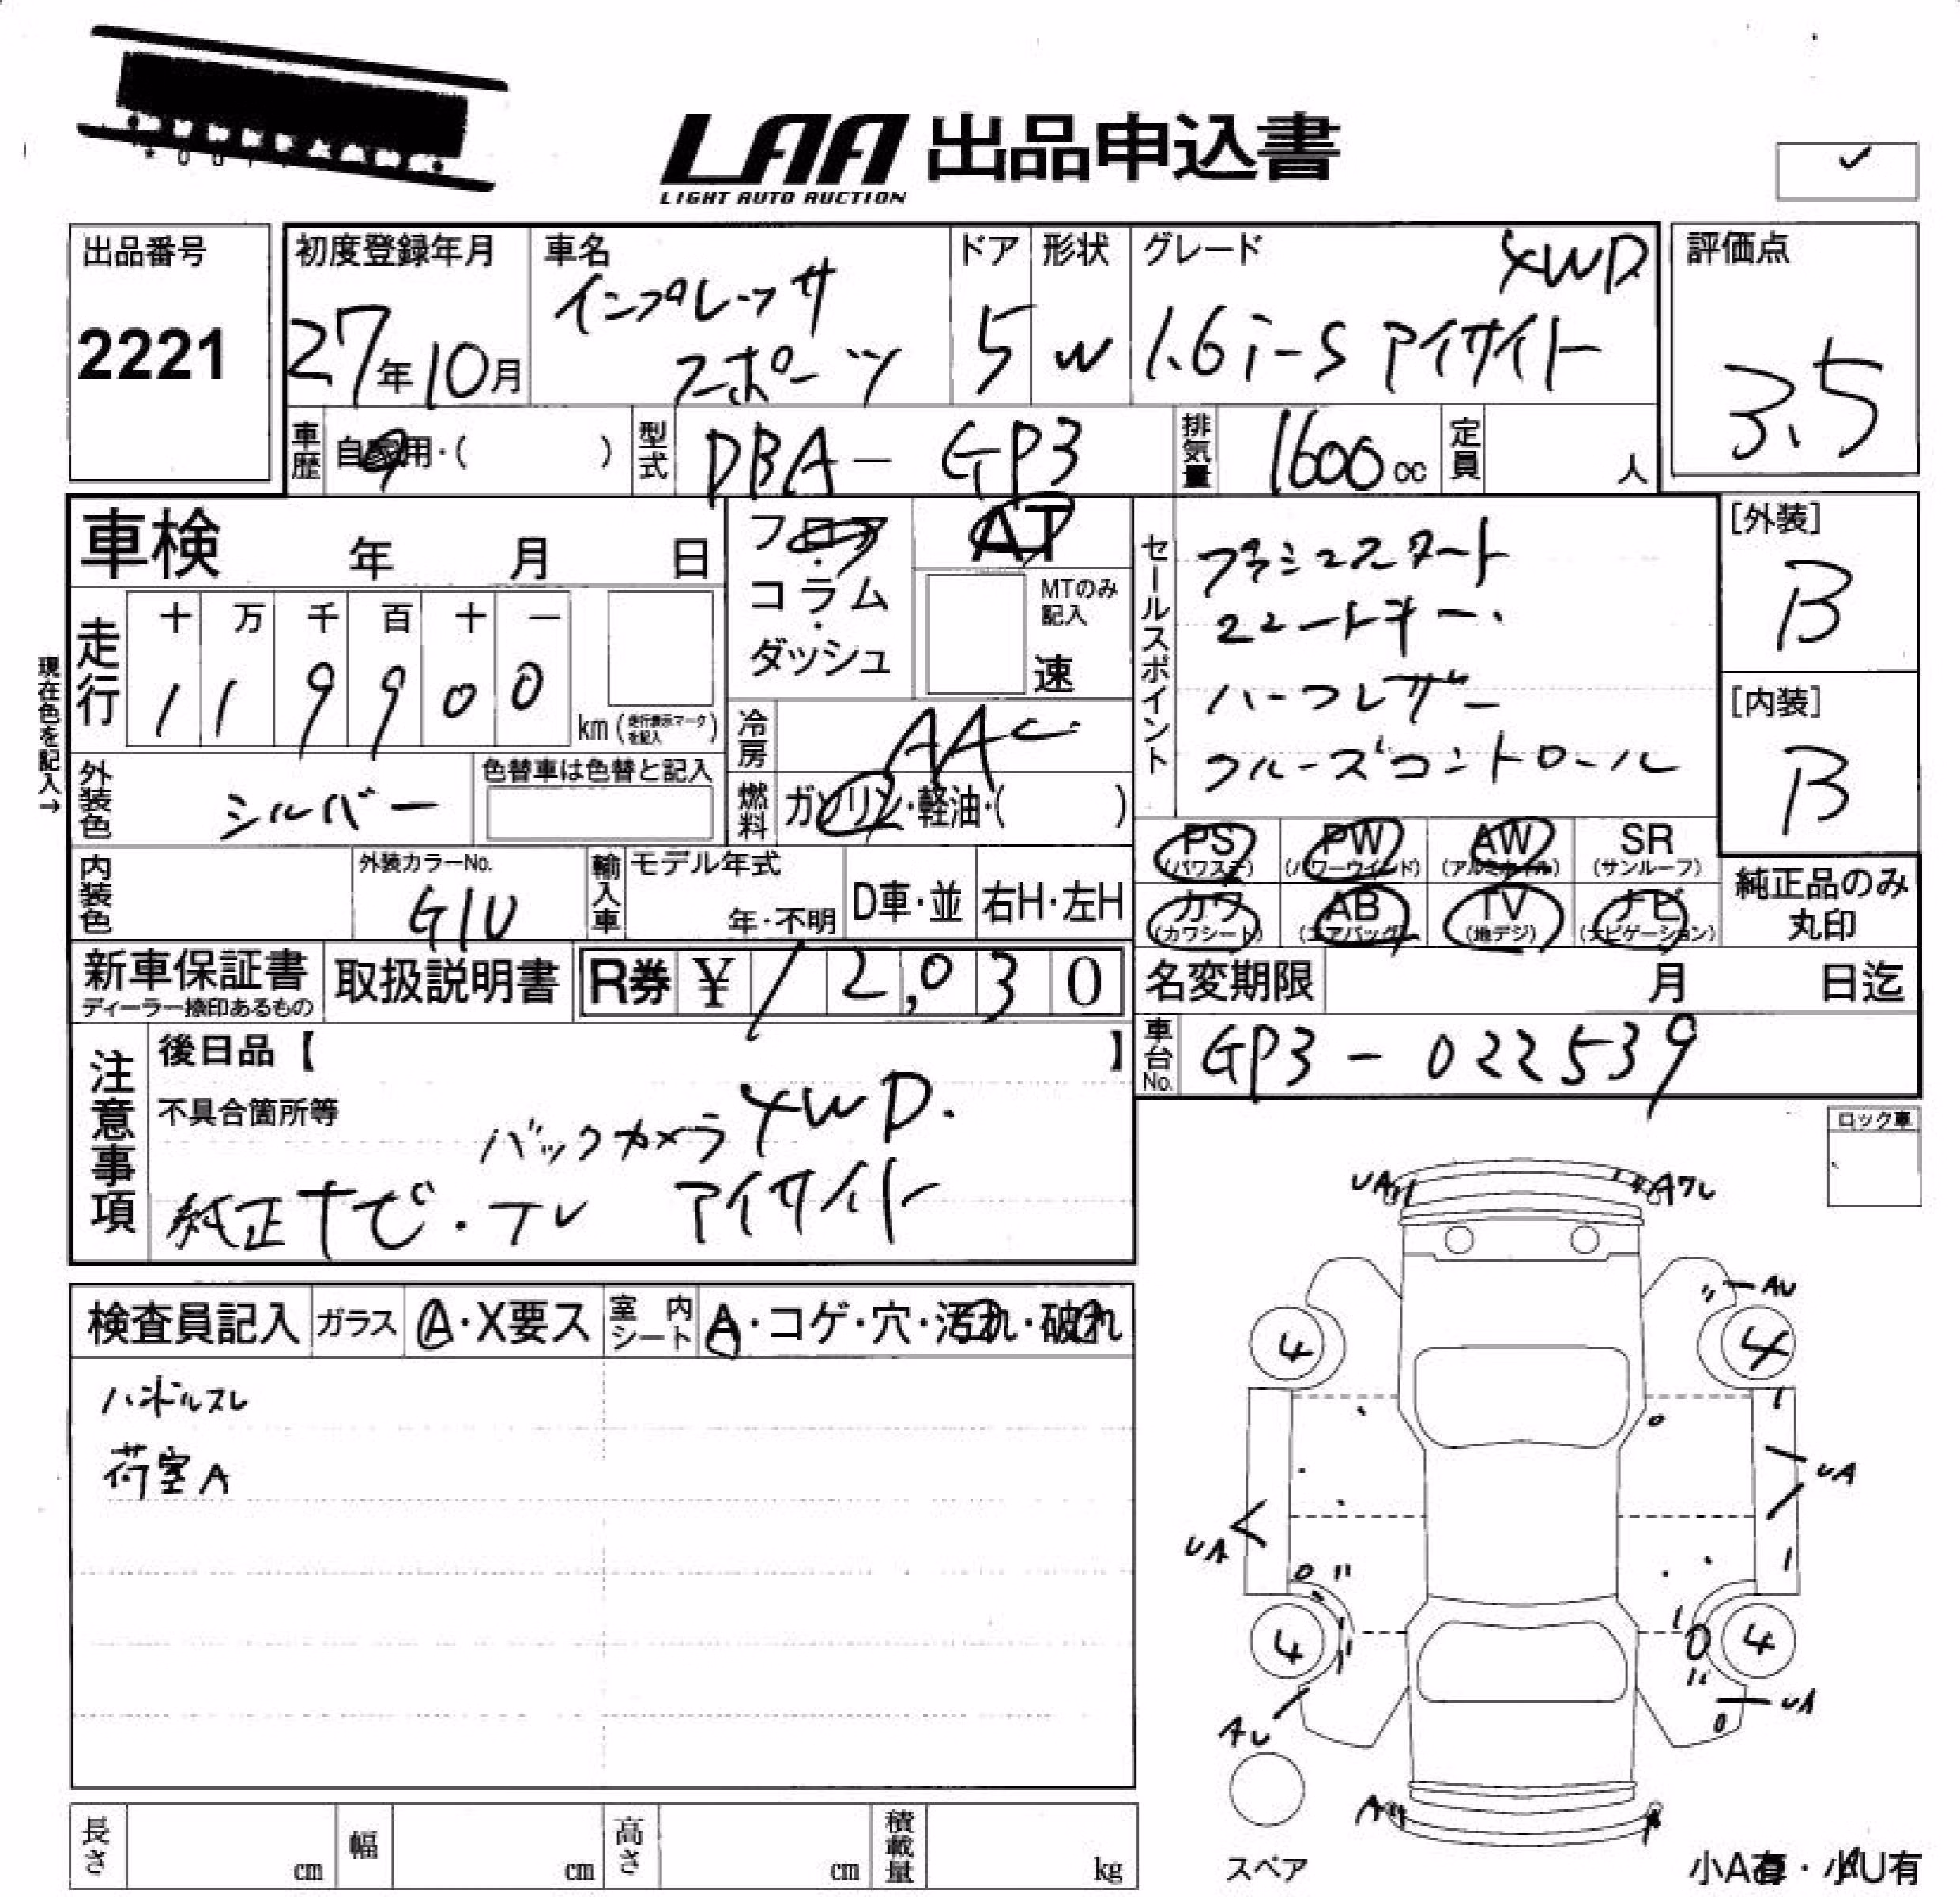 LAA 出品申込書
LIGHT AUTO AUCTION
出品番号
2221
初度登録年月
27年10月
車名
インプレッサ
スポーツ
ドア
5
形状
W
グレード
4WD
1.6i-S アイサイト
評価点
3.5
車歴
自家用・( )
型式
DBA- GP3
排気量
1600cc
定員
人
車検 年 月 日
フロア・コラム・ダッシュ
AT
MTのみ記入
速
セールスポイント
プッシュスタート
スマートキー.
ハーフレザー
クルーズコントロール
[外装]
B
[内装]
B
現在色を記入→
走行
十 万 千 百 十 一
1 1 9 9 0 0
km (走行表示マークを記入)
冷房
AAC
燃料
ガソリン・軽油・( )
外装色
シルバー
色替車は色替と記入
内装色
外装カラーNo.
G1U
輸入車
モデル年式
年・不明
D車・並
右H・左H
PS (パワステ)
PW (パワーウインド)
AW (アルミホイル)
SR (サンルーフ)
カワ (カワシート)
AB (エアバッグ)
TV (地デジ)
ナビ (ナビゲーション)
純正品のみ
丸印
新車保証書
ディーラー捺印あるもの
取扱説明書
R券 ¥ 12,030
名変期限 月 日迄
車台No.
GP3-022539
注意事項
後日品【 】
不具合箇所等
バックカメラ 4WD.
純正ナビ・テレ アイサイト
ロック車
検査員記入
ガラス
A・X要ス
室内シート
A・コゲ・穴・汚れ・破れ
ハンドルスレ
荷室A
UA
Aワレ
AU
4
4
UA
UA
4
4
AU
UA
A
A
スペア
小A有・小U有
長さ cm
幅 cm
高さ cm
積載量 kg